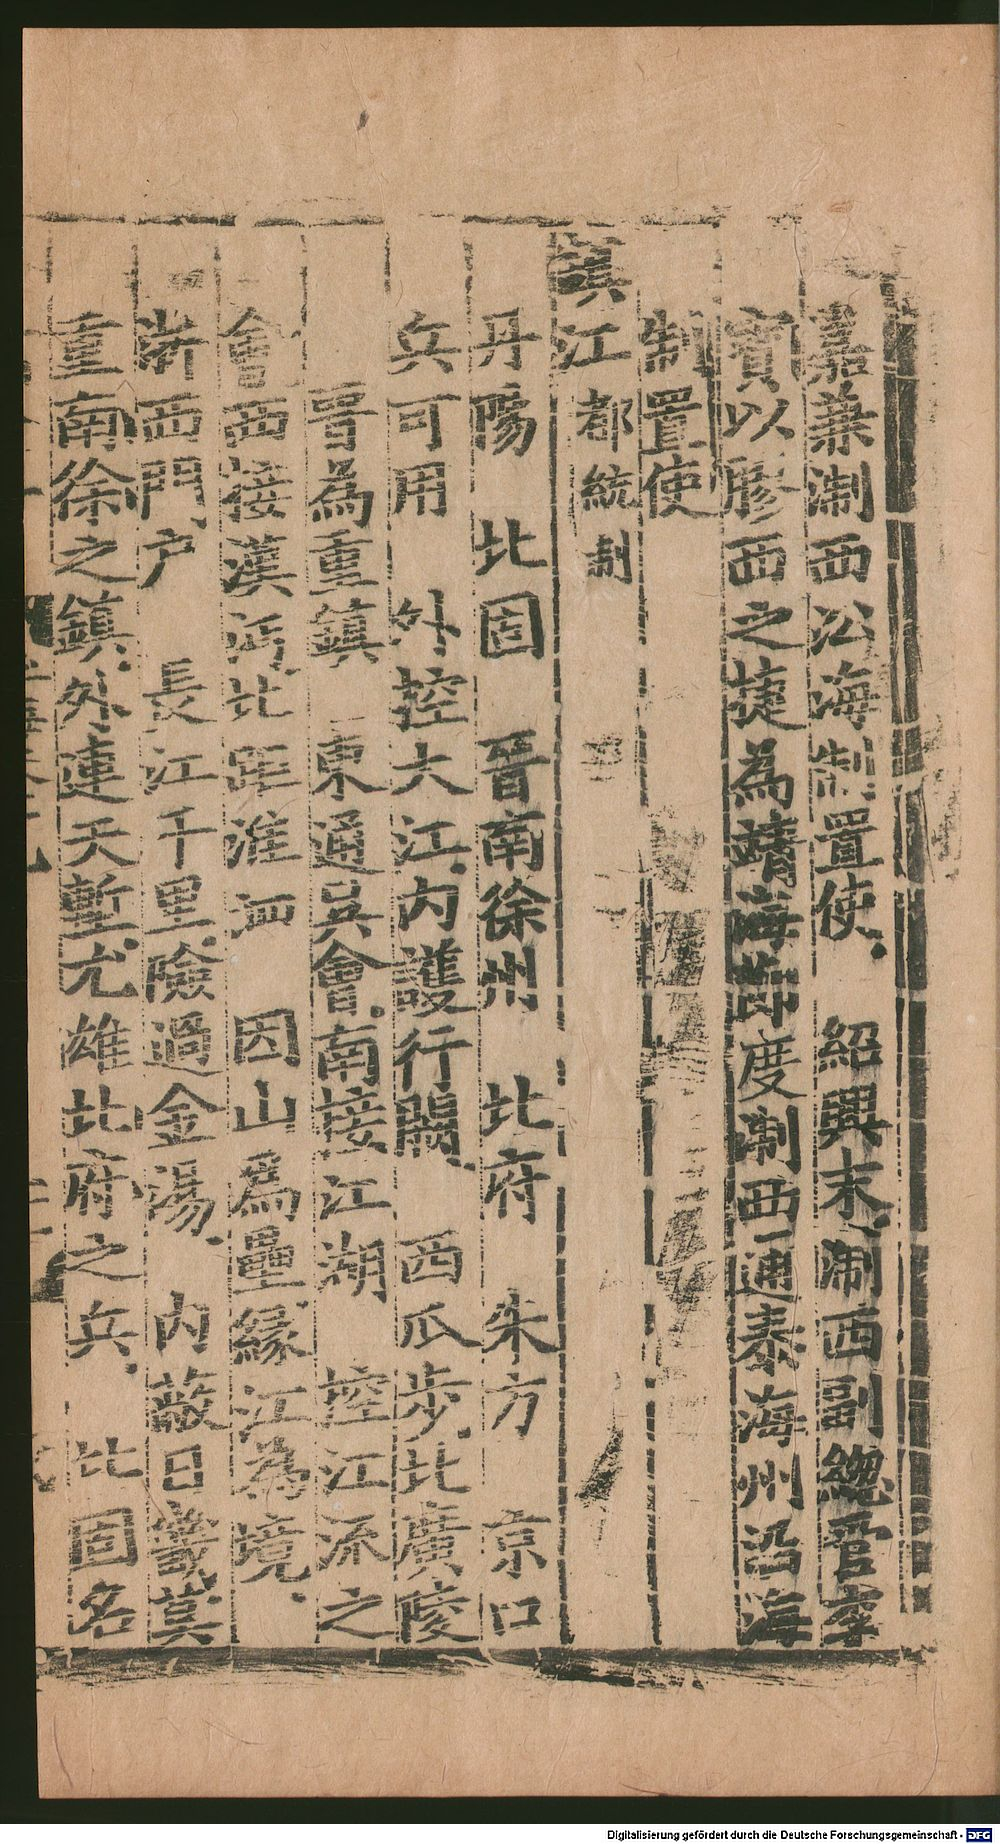 嘉兼淛西沿海制置使 紹興末淛西副緫管李
寳以膠西之捷為靖海節度淛西通泰海州沿海
制置使
鎮江都統制
丹陽 北固 晉南徐州 北府 朱方 京口
兵可用 外控大江内護行闕 西瓜步北廣陵
晉為重鎮 東通吳會南接江湖 控江流之
會西接漢沔北距淮泗 因山為壘緣江為境
浙西門户 長江千里險過金湯 内蔽日畿莫
重南徐之鎮外連天塹尤雄北府之兵 北固名
Digitalisierung gefördert durch die Deutsche Forschungsgemeinschaft - DFG